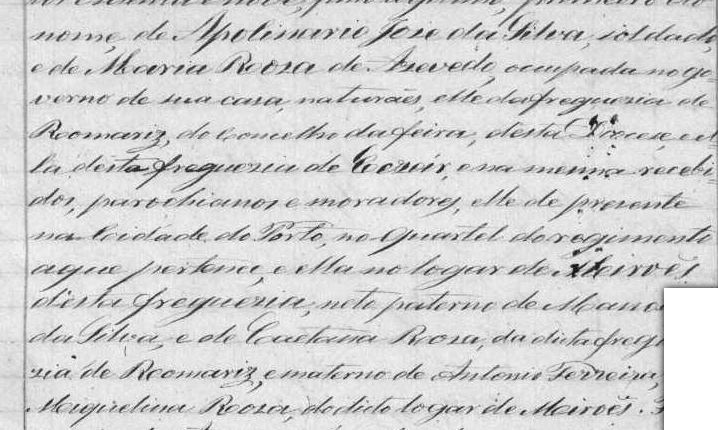 nome, de Apolinario José da Silva, soldado,
e de Maria Roza de Azevedo, ocupada no go
verno de sua casa, naturaes, elle da freguezia de
Roomariz, do concelho da feira, desta Diocese, e el
la desta freguezia de e na mesma recebi
dos, parochianos e moradores, elle de presente
na Cidade do Porto, no Quartel do regimento
a que pertence, e ella no logar de Meirões
desta freguezia, neto paterno de Mano
da Silva, e de Caetana Roza, da dicta freg
zia de Roomariz, e materno de Antonio Ferreira,
Miquelina Roza, do dicto logar de Meirões.